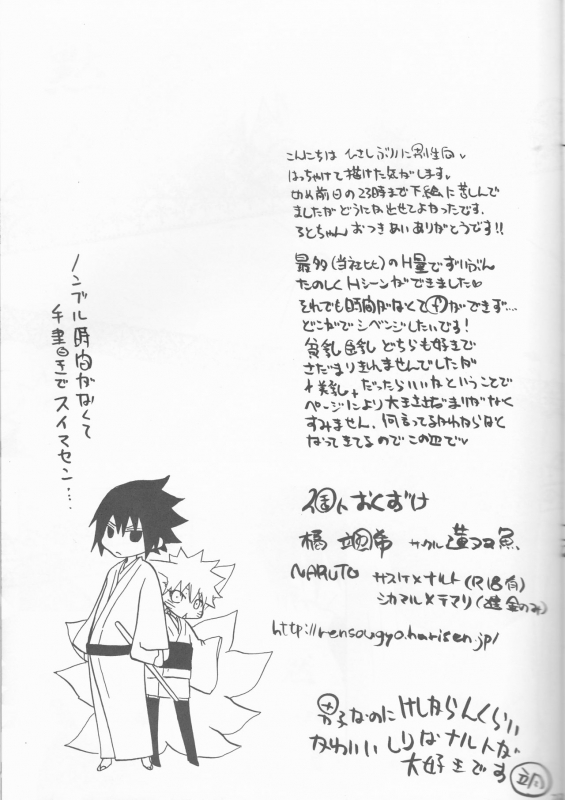 こんにちは ひさしぶりに男性向
はっちゃけて描けた気がします。
〆前日の23時まで下絵に苦しんで
ましたがどうにか出せてよかったです。
るとちゃん おつきあいありがとうです!!
最多(当社比)のH量でずいぶん
たのしくHシーンができました♡
それでも時間がなくて ができず…
どこかでリベンジしたいです!
貧乳 巨乳 どちらも好きで
さだまりきれませんでしたが
美乳 だったらいいかということで
ページにより大きささだまりがなく
すみません、何言ってるかわからなく
なってきてるのでこの辺で♡
ノンブル時間がなくて
手書きでスイマセン…
個人おくずけ
橘 希 サークル 蓮双魚
NARUTO サスケ×ナルト(R18有)
シカマル×テマリ(健全のみ)
http://rensougyo.harisen.jp/
男子なのにけしからんくらい
かわいいしりなナルトが
大好きです